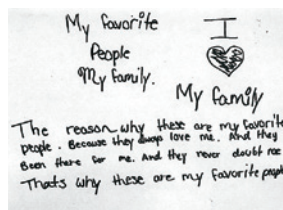 My favorite
People
My family.
I
My family
The reason why these are my favorite
people. Because they always love me. And they
Been there for me. And they never doubt me
Thats why these are my favorite people